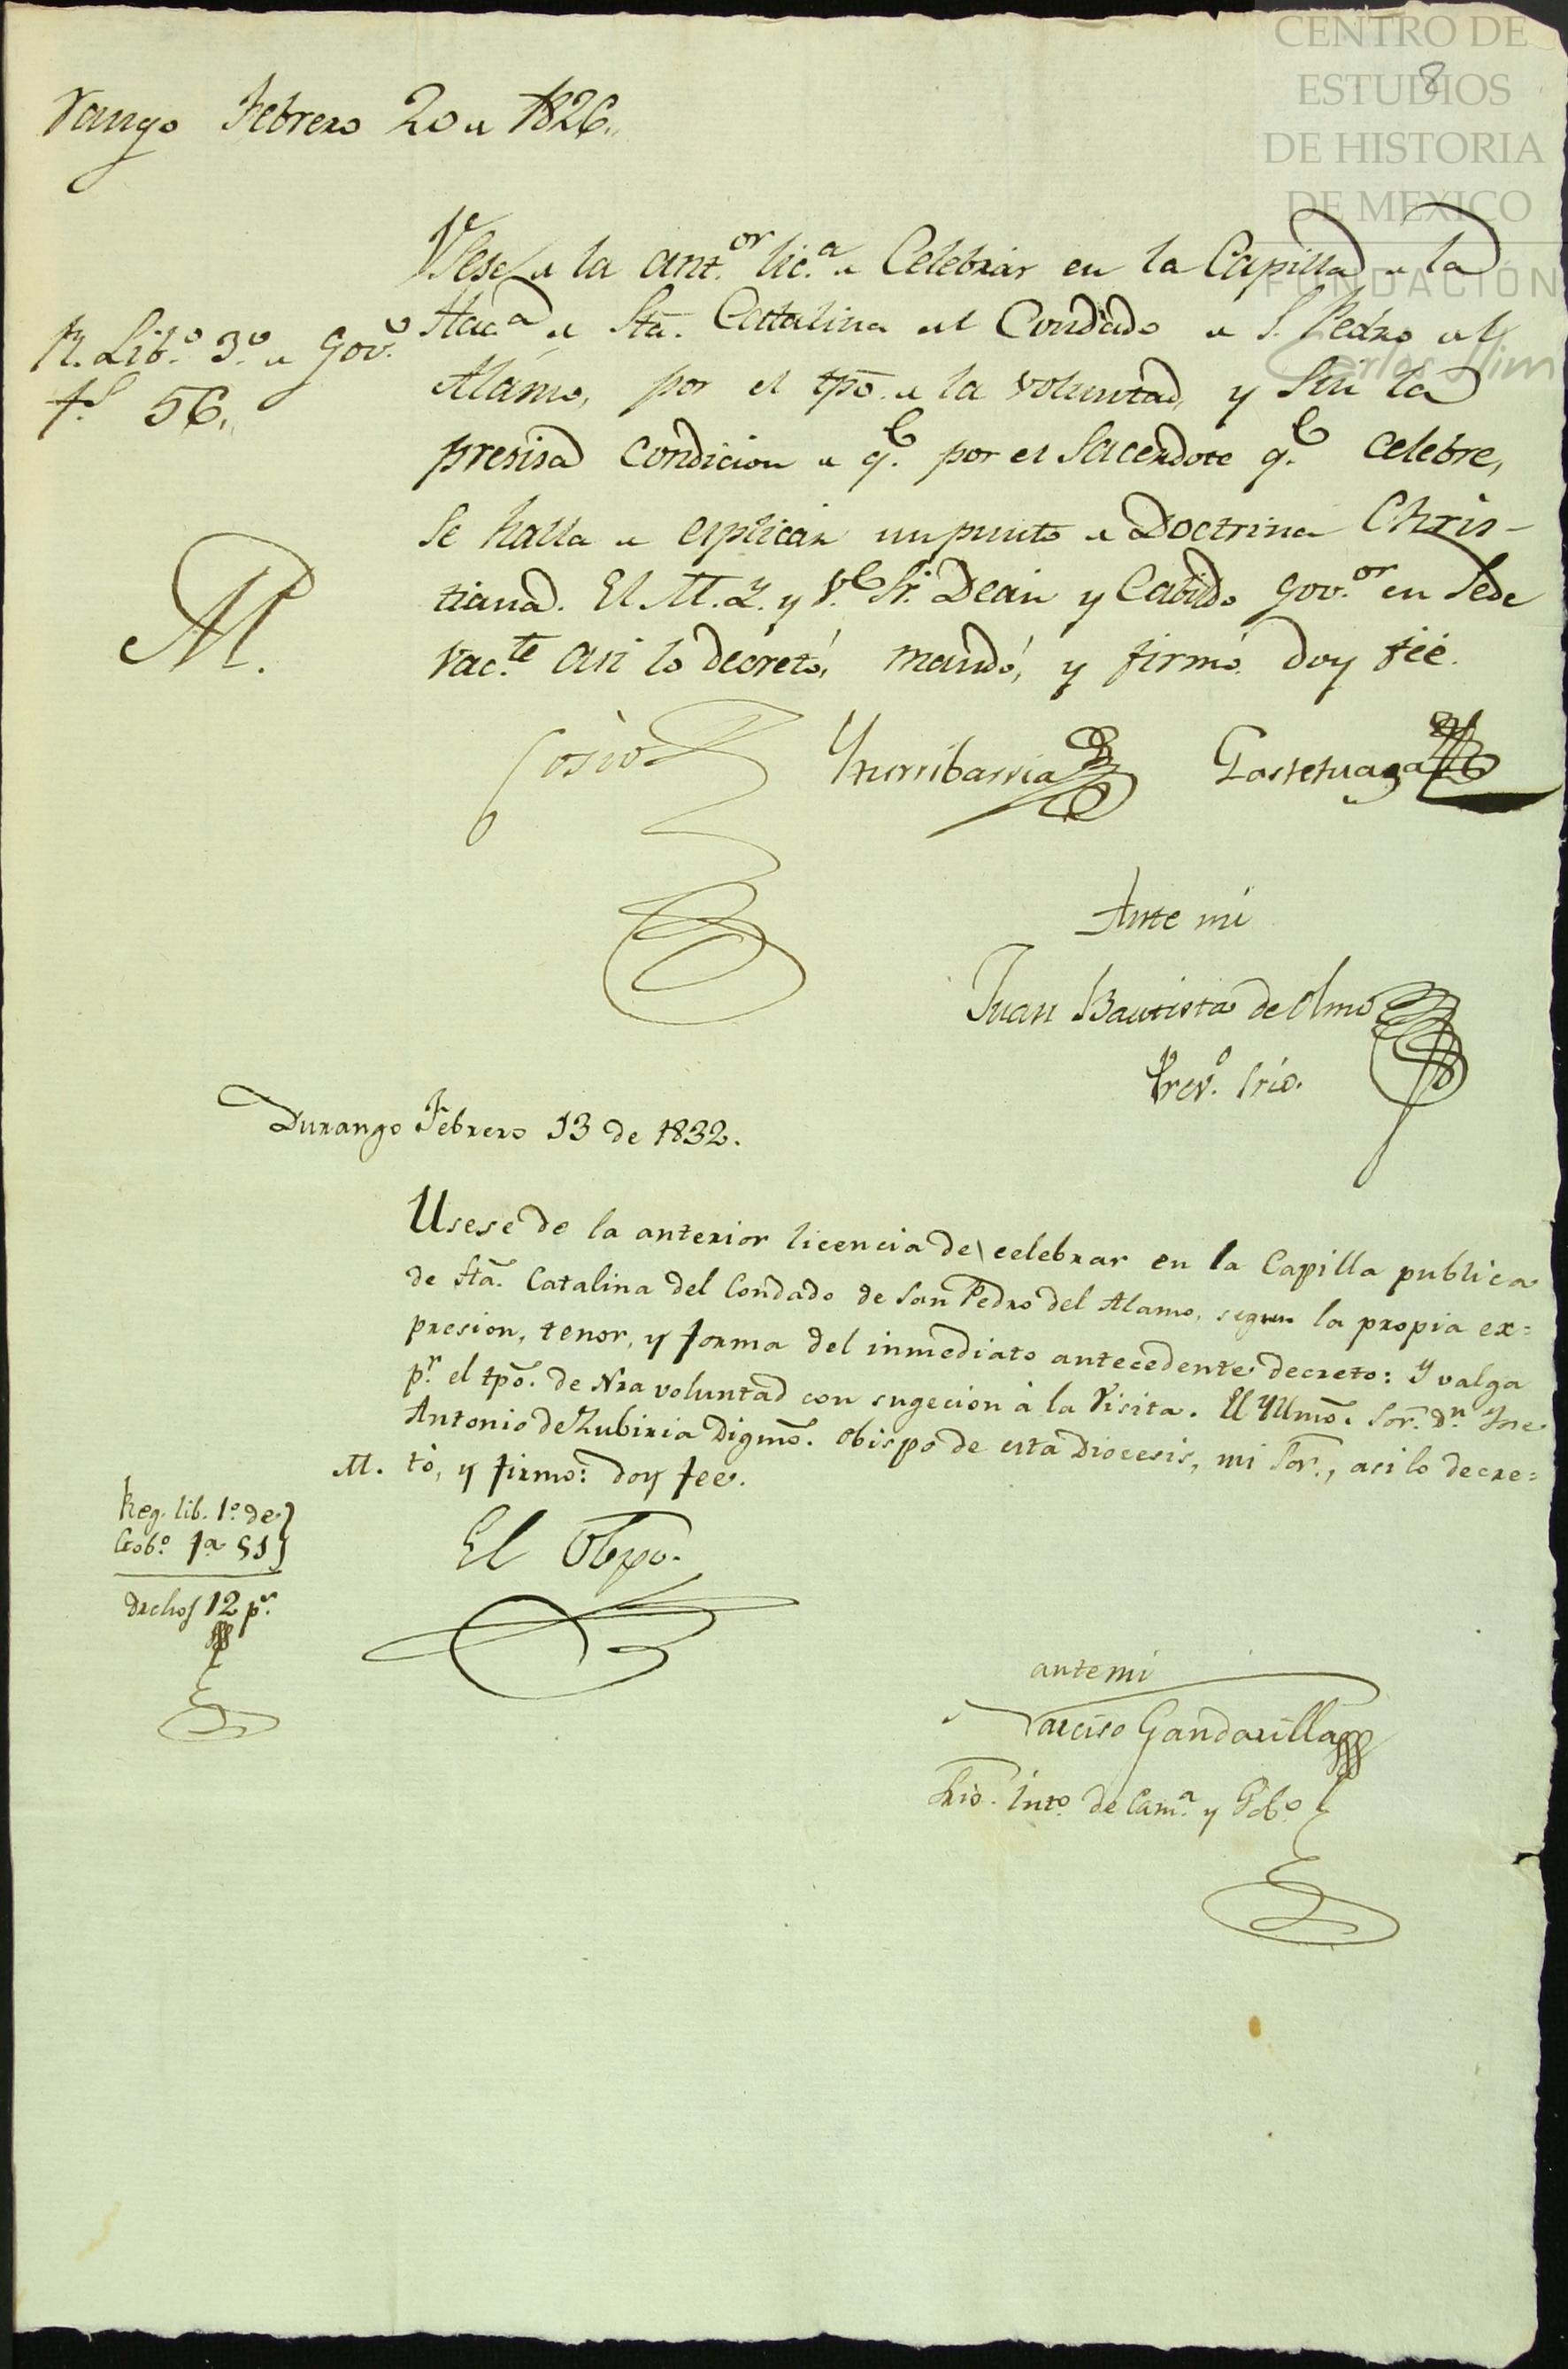 CENTRO DE
ESTUDIOS
DE HISTORIA
DE MEXICO
FUNDACIÓN
Carlos Slim
8
rango Febrero 20 a 1826.
Vsese a la ant.or lic.a a Celebrar en la Capilla a la
Hac.a a Sta. Cattalina al Condado a S. Pedro al
Alamo, por el tpõ. a la voluntad, y Sin la
presisa Condicion a q.e por el Sacerdote q.e Celebre,
Se halla a esplicar un punto a Doctrina Chris-
tiana. El M. Y. y V.e Sr. Dean y Cabildo Gov.or en Sede
Vac.te asi lo decretó, mandó, y firmó. doy fée.
R. Lib.o 3.o a Gov.o
f.s 56.
M.
Cosio Yturribarria Gastetuaga
Ante mi
Juan Bautista de Olmo
Prev.o Srio.
Durango Febrero 13 de 1832.
Usese de la anterior licencia de celebrar en la Capilla publica
de Sta. Catalina del Condado de San Pedro del Alamo, segun la propia ex=
presion, tenor, y forma del inmediato antecedente decreto: Y valga
p.r el tpõ. de Nra voluntad con sugecion á la Visita. El Yllmõ. Sor. Dn Jose
Antonio de Zubiria Digmõ. Obispo de esta Diocesis, mi Sor., asi lo decre=
M. tó, y firmó: doy fee.
Reg. lib. 1.o de
Gob.o fa 51
Drchos 12 p.s
El Obpo.
ante mi
Narciso Gandarilla
Srio. Into. de Cam.a y Gob.o